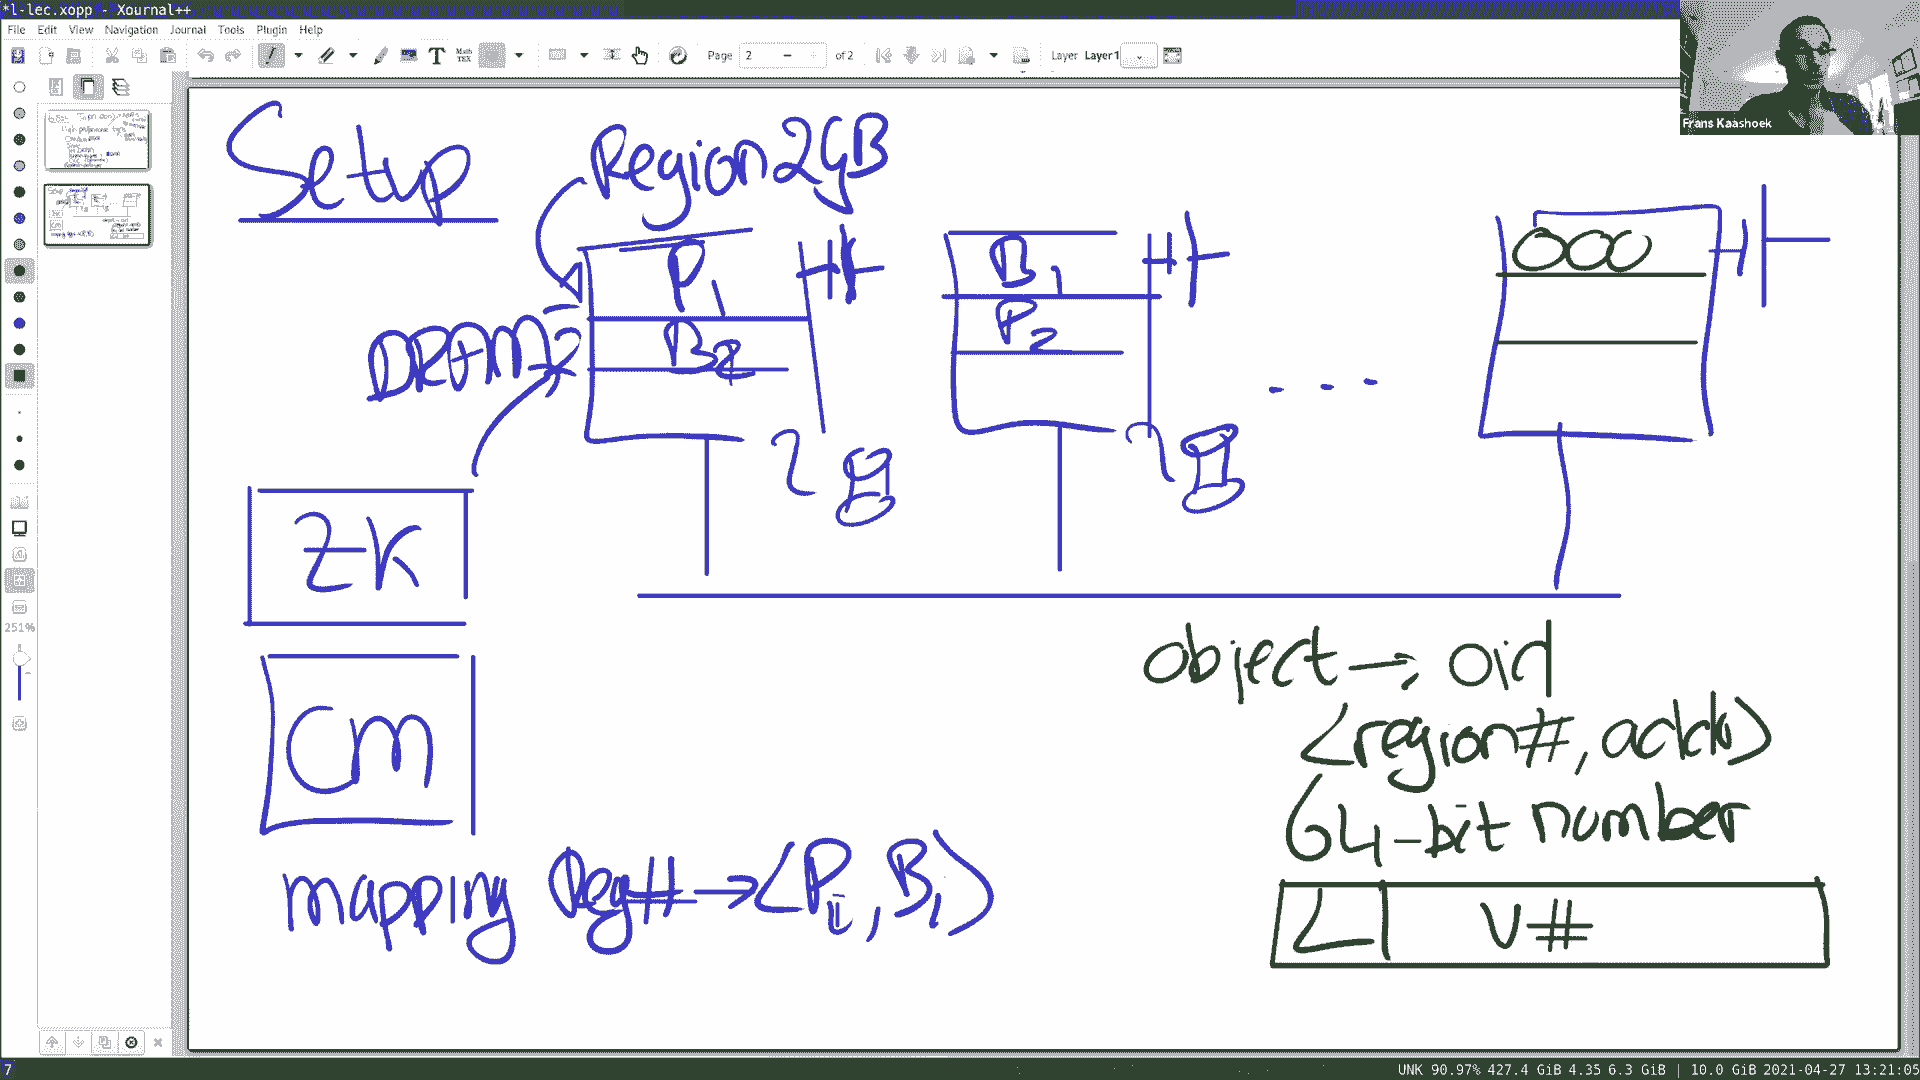 *l-lec.xopp - Xournal++
File Edit View Navigation Journal Tools Plugin Help
Page 2 of 2 Layer Layer1
Frans Kaashoek
Setup
Region 2GB
P1
B2
B1
P2
DRAM
ZK
CM
251%
object → oid
<region#, addr>
64-bit number
L V#
mapping Reg# → <P1, B1>
7
UNK 90.97% 427.4 GiB 4.35 6.3 GiB | 10.0 GiB 2021-04-27 13:21:05